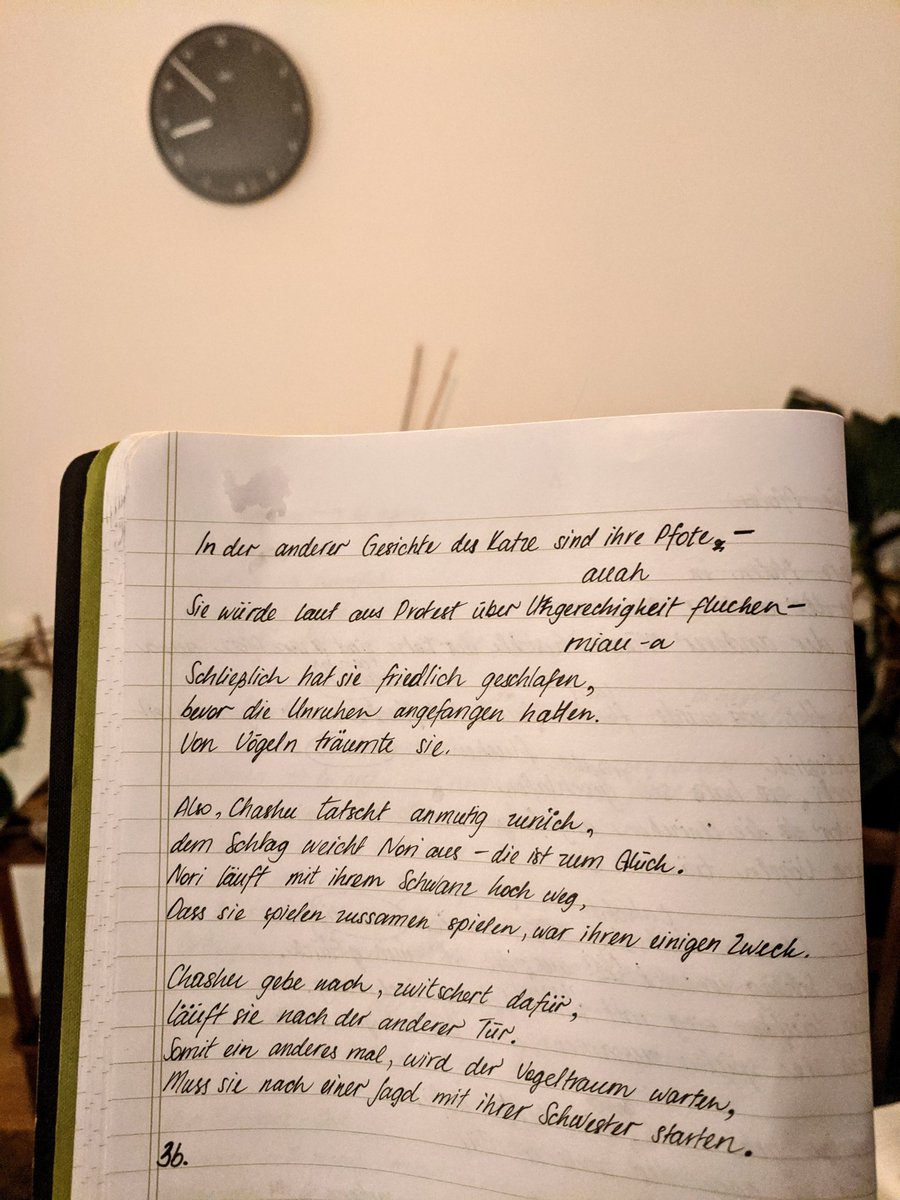 In der anderer Gesichte des Katze sind ihre Pfote, –
auah
Sie würde laut aus Protest über Ungerechigheit fluchen –
miau -a
Schließlich hat sie friedlich geschlafen,
bevor die Unruhen angefangen hatten.
Von Vögeln träumte sie.
Also, Chashu tatscht anmutig zurück,
dem Schlag weicht Nori aus – die ist zum Glück.
Nori läuft mit ihrem Schwanz hoch weg,
Dass sie spielen zussamen spielen, war ihren einigen Zweck.
Chashu gebe nach, zwitschert dafür,
läuft sie nach der anderer Tür.
Somit ein anderes mal, wird der Vogeltraum warten,
Muss sie nach einer Jagd mit ihrer Schwester starten.
36.